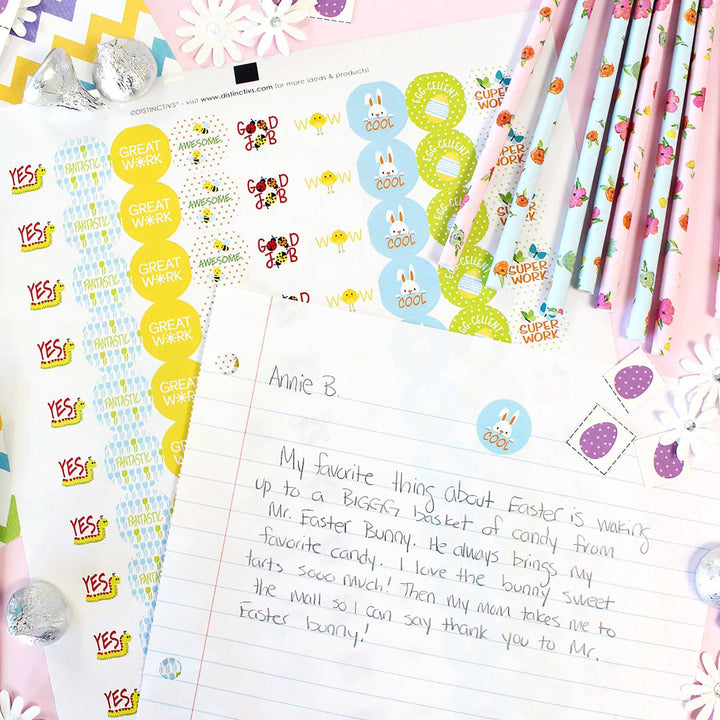 ©DISTINCTIVS® - visit www.distinctivs.com for more ideas & products!
YES!
YES!
YES!
YES!
YES!
YES!
YES!
YES!
YES!
YES!
FANTASTIC
FANTASTIC
FANTASTIC
FANTASTIC
FANTASTIC
FANTASTIC
FANTASTIC
FANTASTIC
GREAT
WORK
GREAT
WORK
GREAT
WORK
GREAT
WORK
AWESOME
AWESOME
AWESOME
GOOD
JOB
GOOD
JOB
GOOD
JOB
GOOD
JOB
WOW
WOW
WOW
WOW
COOL
COOL
COOL
COOL
EGG-CELLENT
EGG-CELLENT
EGG-CELLENT
EGG-CELLENT
SUPER
WORK
SUPER
WORK
SUPER
WORK
SUPER
WORK
SUPER
WORK
Annie B.
COOL
My favorite thing about Easter is waking
up to a BIGGG basket of candy from
Mr. Easter Bunny. He always brings my
favorite candy. I love the bunny sweet
tarts sooo much! Then my mom takes me to
the mall so I can say thank you to Mr.
Easter bunny!